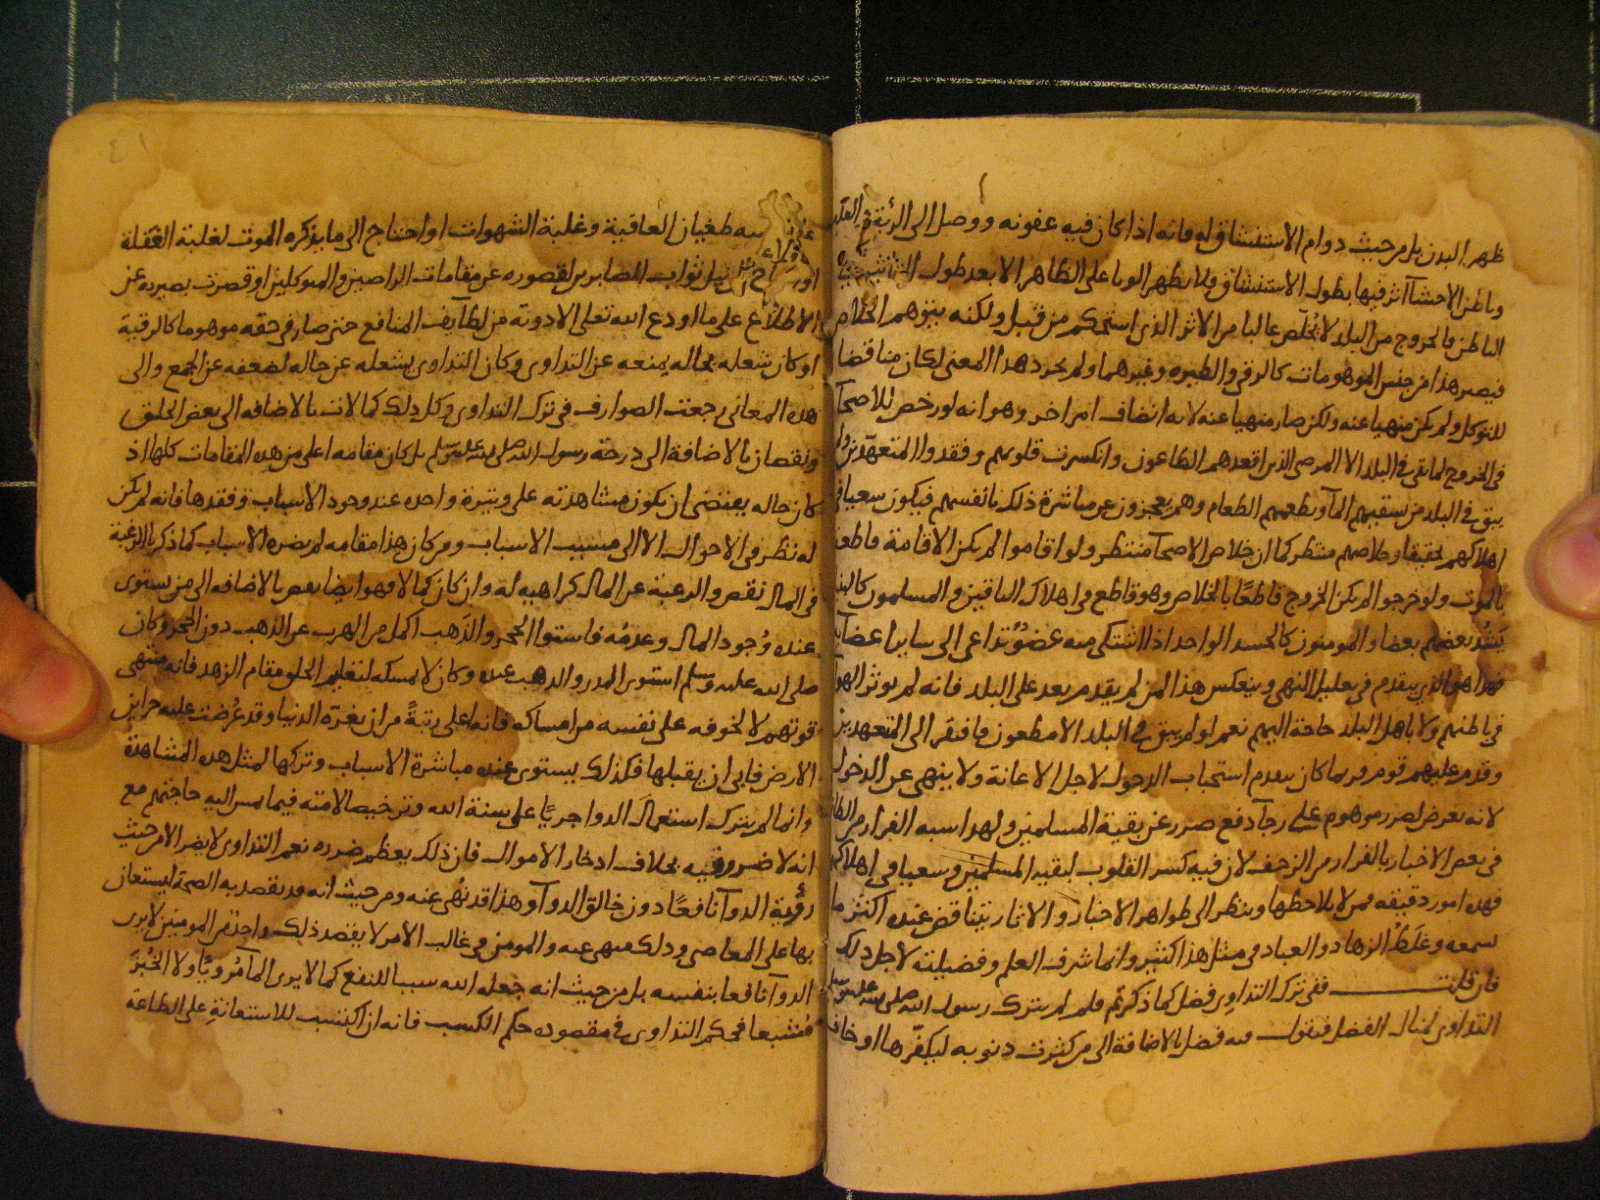 ظهر البدن بل من حيث دوام الاستنشاق له فانه اذا كان فيه عفونه ووصل الى الرئة والقلب
وباطن الاحشآ اثر فيها بطول الاستنشاق فلا يظهر الوبا على الظاهر الا بعد طول التاثير في
الباطن فالخروج من البلد لا يُخلّص غالبا من الاثر الذى استحكم من قبل ولكنه يتوهم الخلاص
فيصير هذا من جنس الموهومات كالرقى والطيره وغيرهما ولو تجرد هذا المعنى لكان مناقضا
للتوكل ولم يكن منهيا عنه ولكن صار منهيا عنه لانه انضاف امر اخر وهو انه لو رخص للاصحآ
فى الخروج لما بقى فى البلد الا المرضى الذين اقعدهم الطاعون وانكسرت قلوبهم وفقدوا المتعهّدين ولم
يبق فى البلد من يسقيهم المآ ويطعمهم الطعام وهم يعجزون عن مباشرة ذلك بانفسهم فيكون سعيا فى
اهلاكهم تحقيقا وخلاصهم منتظر كما ان خلاص الاصحآ منتظر ولو اقاموا لم تكن الاقامة قاطعة
بالموت ولو خرجوا لم يكن الخروج قاطعًا بالخلاص وهو قاطع فى اهلاك الباقين والمسلمون كالبنيان
يَشُد بعضهم بعضا والمومنون كالجسد الواحد اذا اشتكى منه عضوٌ تداعى الى ساير اعضآيه
فهذا هو الذى ينقدم فى تعليل النهى وينعكس هذا لمن لم يقدم بعد على البلد فانه لم يوثر الهوآ
فى باطنهم ولا باهل البلد حاجة اليهم نعم لو لم يبق فى البلد الا مطعون فافتقر الى المتعهدين
وقدم عليهم قوم فربما كان ينقدم استحباب الدخول لاجل الاعانة ولا ينهى عن الدخول
لانه تعرض لضرر موهوم على رجآ دفع ضرر عن بقية المسلمين ولهذا شبه الفرار من الطاعون
فى بعض الاخبار بالفرار من الزحف لان فيه كسر القلوب لبقيه المسلمين وسعيا فى اهلاكهم
فهذه امور دقيقه فمن لا يلاحظها وينظر الى ظواهر الاخبار والاثار يتناقض عنده اكثر ما
سمعه وغلَطُ الزهاد والعباد فى مثل هذا كثير وانما شرف العلم وفضيلته لاجل ذلك
فان قلت ففى ترك التداوى فضل كما ذكرتم فلم لم يترك رسول الله صلى الله عليه وسلم
التداوى لينال الفضل فنقول فيه فضل بالاضافة الى من كثرت ذنوبه ليكفّرها او خاف
٤١
على نفسه طغيان العافية وغلبة الشهوات او احتاج الى ما يذكره الموت لغلبة الغفلة
او احتاج الى نيل ثواب الصابرين لقصوره عن مقامات الراضين والمتوكلين او قصرت بصيرته عن
الاطلاع على ما اودع الله تعلى الادوية من لطآيف المنافع حتى صار فى حقه موهوما كالرقية
او كان شغله بحاله يمنعه عن التداوى وكان التداوى يشغله عن حاله لضعفه عن الجمع والى
هذه المعانى رجعت الصوارف فى ترك التداوى وكل ذلك كمالات بالاضافه الى بعض الخلق
ونقصان بالاضافة الى درجة رسول الله صلى الله عليه وسلم بل كان مقامه اعلى من هذه المقامات كلها اذ
كان حاله يقتضى ان تكون مشاهدته على وتيرة واحده عند وجود الاسباب وفقدها فانه لم يكن
له نظر فى الاحوال الا الى مسبب الاسباب ومن كان هذا مقامه لم يضره الاسباب كما ذكر ان الرغبة
فى المال نقص والرغبة عن المال كراهيه له وان كان كمالا فهو ايضا نقص بالاضافه الى من يستوى
عنده وُجود المال وعدمُه فاستوا الحجر والذَهب اكمل من الهرب عن الذهب دون الحجر وكان
صلى الله عليه وسلم استوى المدر والذهب عنده وكان لا يمسكه لتعليم الخلق مقام الزهد فانه منتهى
قوتهم لا لخوفه على نفسه من امساكه فانه اعلى رتبةً من ان يغرّه الدنيا وقد عُرضت عليه خزاين
الارض فابى ان يقبلها فلذلك يستوى عنده مباشرة الاسباب وتركها لمثل هذه المشاهدة
وانما لم يترك استعمال الدوا جريًا على سنة الله وترخيصا لامته فيما يمس اليه حاجتهم مع
انه لا ضرر فيه بخلاف ادخار الاموال فان ذلك يعظم ضرره نعم التداوى لا يضر الا من حيث
رؤية الدوآ نافعًا دون خالق الدوآ وهذا قد نُهى عنه ومن حيث انه قد يقصد به الصحة ليستعان
بها على المعاصى وذلك منهى عنه والمومن فى غالب الأمر لا يقصد ذلك واحدٌ من المومنين لا يرى
الدوآ نافعا بنفسه بل من حيث انه جعله الله سببا للنفع كما لا يرى المآ مُرويًا ولا الخُبزَ
مُشبعا فحكم التداوى فى مقصوده حكم الكسب فانه ان اكتسب للاستعانةِ على الطاعة